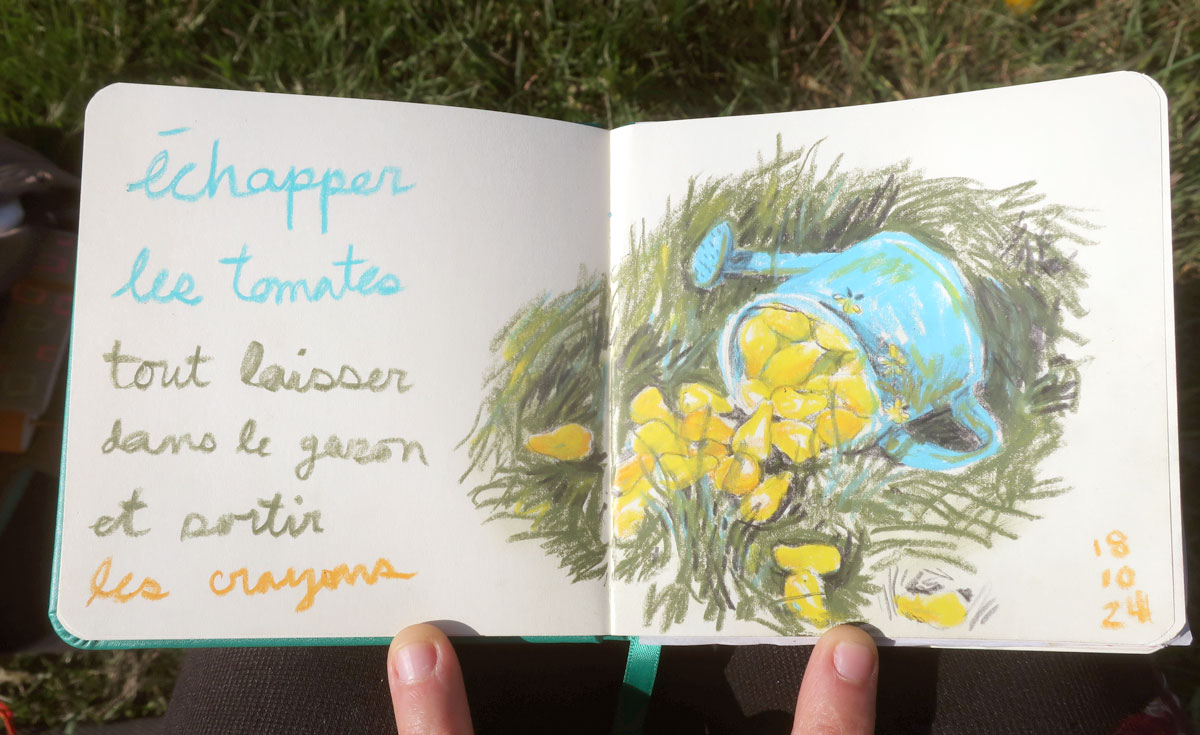 échapper
les tomates
tout laisser
dans le gazon
et sortir
les crayons
18
10
24